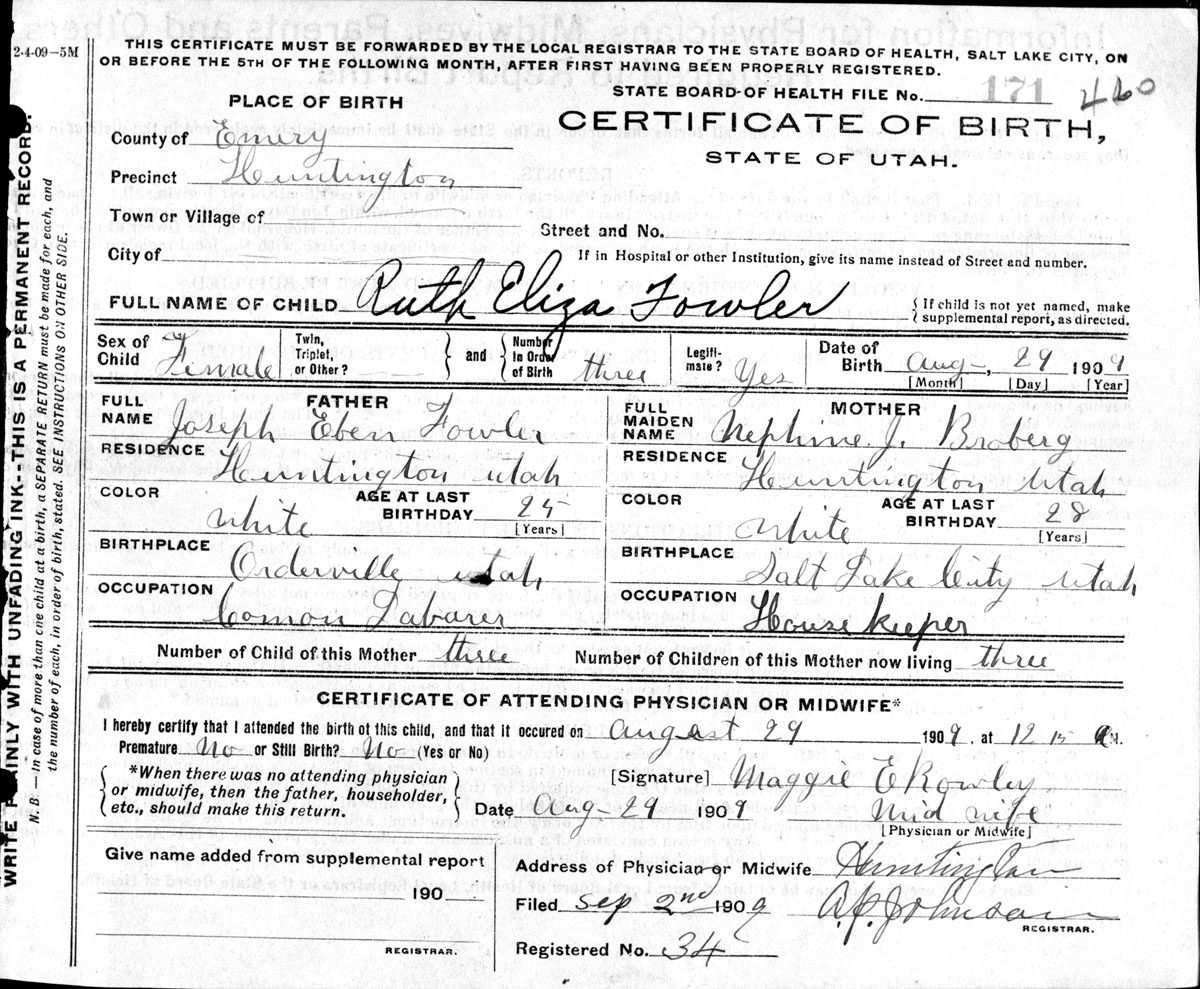 2-4-09-5M
THIS CERTIFICATE MUST BE FORWARDED BY THE LOCAL REGISTRAR TO THE STATE BOARD OF HEALTH, SALT LAKE CITY, ON
OR BEFORE THE 5TH OF THE FOLLOWING MONTH, AFTER FIRST HAVING BEEN PROPERLY REGISTERED.
STATE BOARD OF HEALTH FILE No. 171 460
PLACE OF BIRTH
CERTIFICATE OF BIRTH,
STATE OF UTAH.
County of Emery
Precinct Huntington
Town or Village of
Street and No.
City of
If in Hospital or other Institution, give its name instead of Street and number.
FULL NAME OF CHILD Ruth Eliza Fowler { If child is not yet named, make supplemental report, as directed.
Sex of Child Female Twin, Triplet, or Other? } and { Number in Order of Birth three Legiti-mate? Yes Date of Birth Aug-, 29 1909
[Month] [Day] [Year]
FATHER
FULL NAME Joseph Eben Fowler
RESIDENCE Huntington utah
COLOR white AGE AT LAST BIRTHDAY 25 [Years]
BIRTHPLACE Orderville utah
OCCUPATION Comon Labarer
MOTHER
FULL MAIDEN NAME Nephine J. Broberg
RESIDENCE Huntington Utah
COLOR White AGE AT LAST BIRTHDAY 28 [Years]
BIRTHPLACE Salt Lake City Utah
OCCUPATION House keeper
Number of Child of this Mother three Number of Children of this Mother now living three
CERTIFICATE OF ATTENDING PHYSICIAN OR MIDWIFE*
I hereby certify that I attended the birth of this child, and that it occured on august 29 1909, at 12 15 a M.
Premature No or Still Birth? No (Yes or No)
{ *When there was no attending physician or midwife, then the father, householder, etc., should make this return. }
[Signature] Maggie E Rowley
Date Aug 29 1909 Mid wife
[Physician or Midwife]
Give name added from supplemental report
190
REGISTRAR.
Address of Physician or Midwife Huntington
Filed Sep 2nd 1909 A.J. Johnson
REGISTRAR.
Registered No. 34
WRITE PLAINLY WITH UNFADING INK-THIS IS A PERMANENT RECORD.
N. B.—In case of more than one child at a birth, a SEPARATE RETURN must be made for each, and
the number of each, in order of birth, stated. SEE INSTRUCTIONS ON OTHER SIDE.